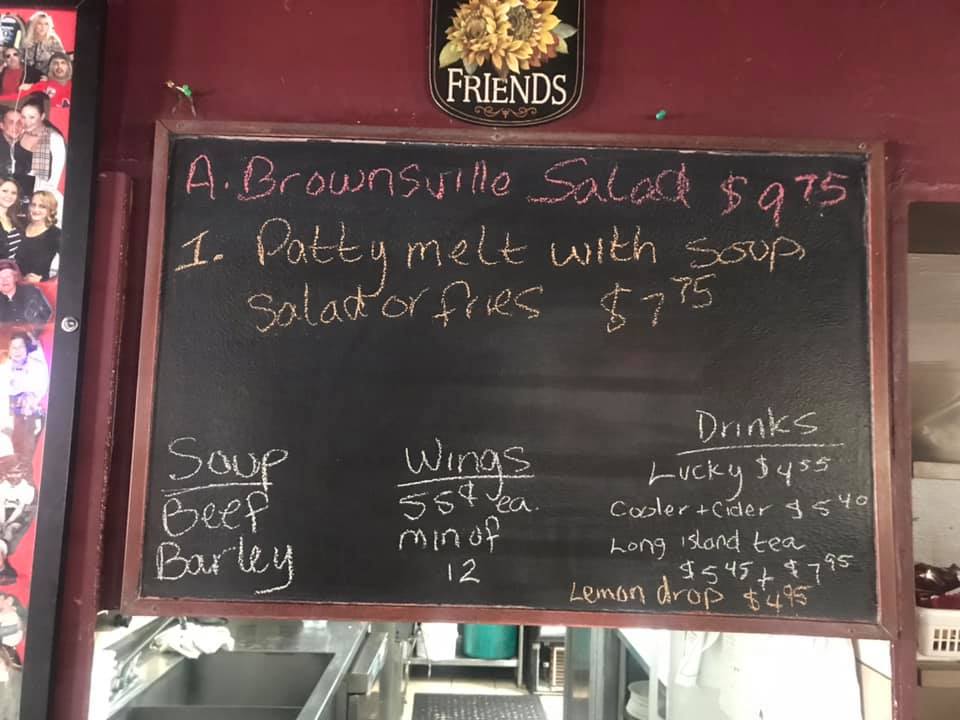 FRIENDS
A. Brownsville Salad $9 75
1. Patty melt with soup,
salad or fries $7 75
Soup
Beef
Barley
Wings
55¢ ea.
min of
12
Drinks
Lucky $4 55
Cooler + Cider $5 40
Long island tea
$5 45 + $7 95
Lemon drop $4 95